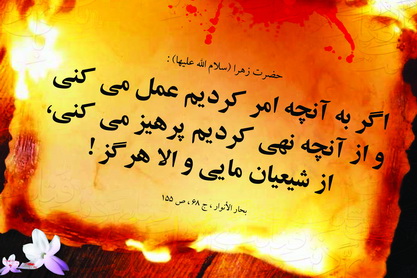 حضرت زهرا (سلام الله علیها) :
اگر به آنچه امر کردیم عمل می کنی
و از آنچه نهی کردیم پرهیز می کنی،
از شیعیان مایی و الا هرگز!
بحار الأنوار ، ج ۶۸ ، ص ۱۵۵